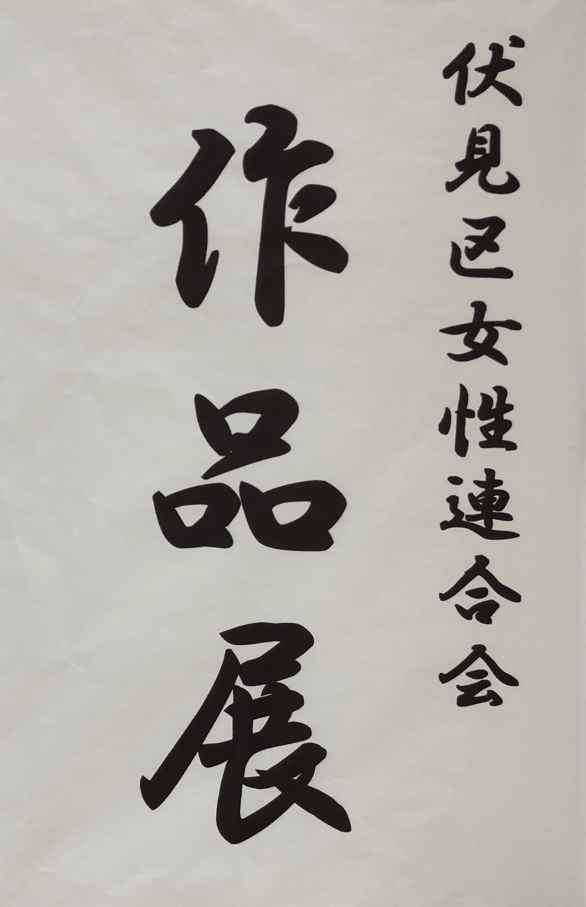 伏見区女性連合会
作品展